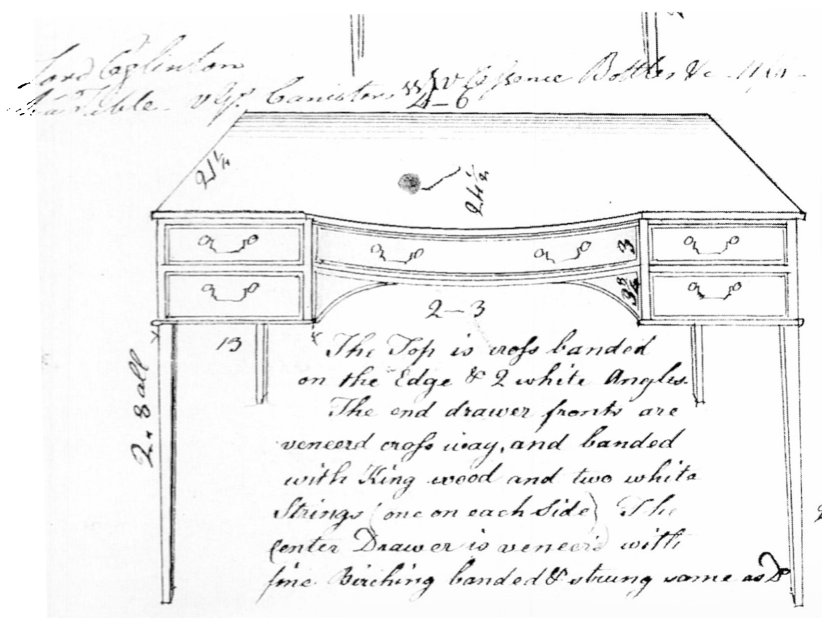 Lord Eaglinton
Table Canisters Essence Bottles &c
4–6
21¼
24½
3
2–3
13
2.8 all
The Top is cross banded
on the Edge & 2 white Angles
The end drawer fronts are
veneerd cross way, and banded
with King wood and two white
Strings (one on each Side) The
Center Drawer is veneerd with
fine Birching banded & strung same as Do